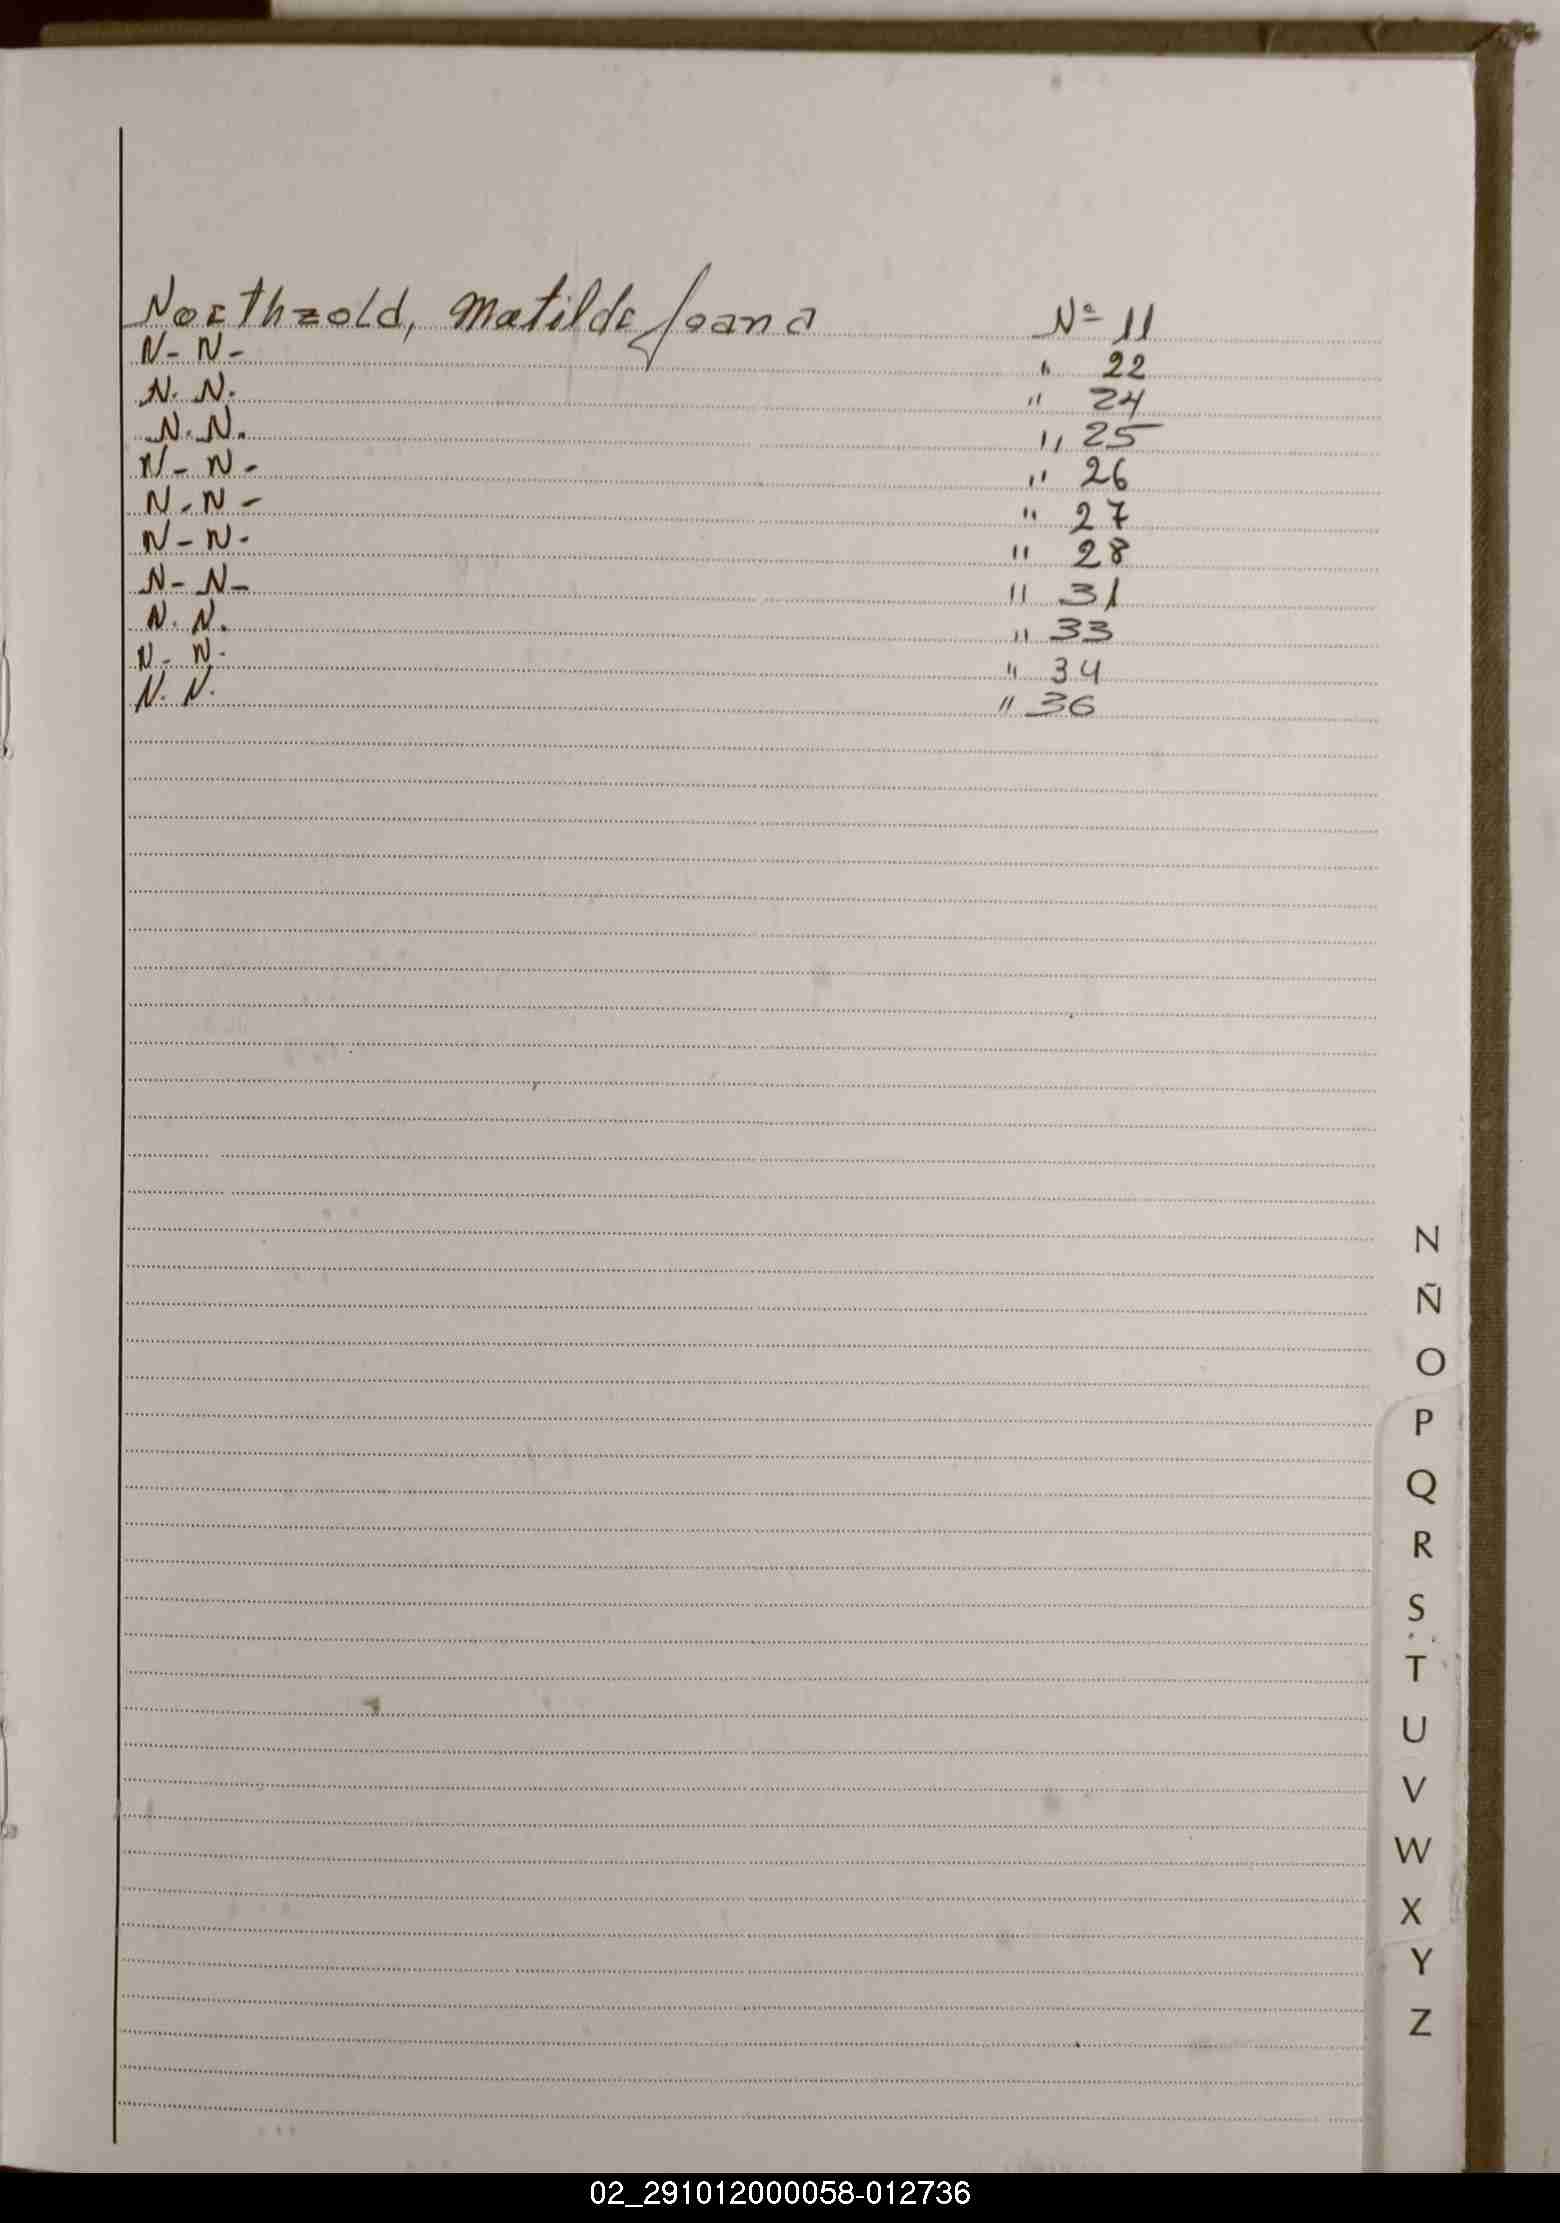 Noethzold, Matilde Joana Nº 11
N- N- " 22
N. N. " 24
N. N. " 25
N- N- " 26
N- N- " 27
N- N- " 28
N- N- " 31
N. N. " 33
N- N- " 34
N. N. " 36
N
Ñ
O
P
Q
R
S
T
U
V
W
X
Y
Z
02_291012000058-012736